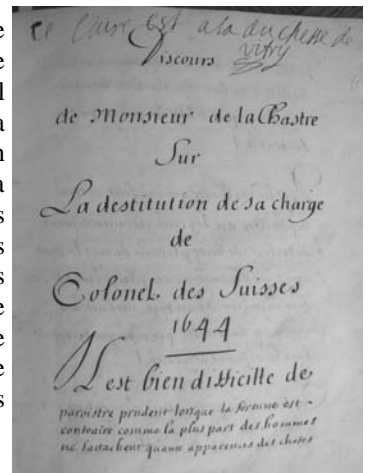 ce Liure est a la duchesse de
vitry
Discours
de Monsieur de la Chastre
Sur
La destitution de sa charge
de
Colonel des Suisses
1644
Il est bien difficille de
paroistre prudent lorsque la fortune est
contraire comme la plus part des hommes
ne sattachent quaux apparences des choses